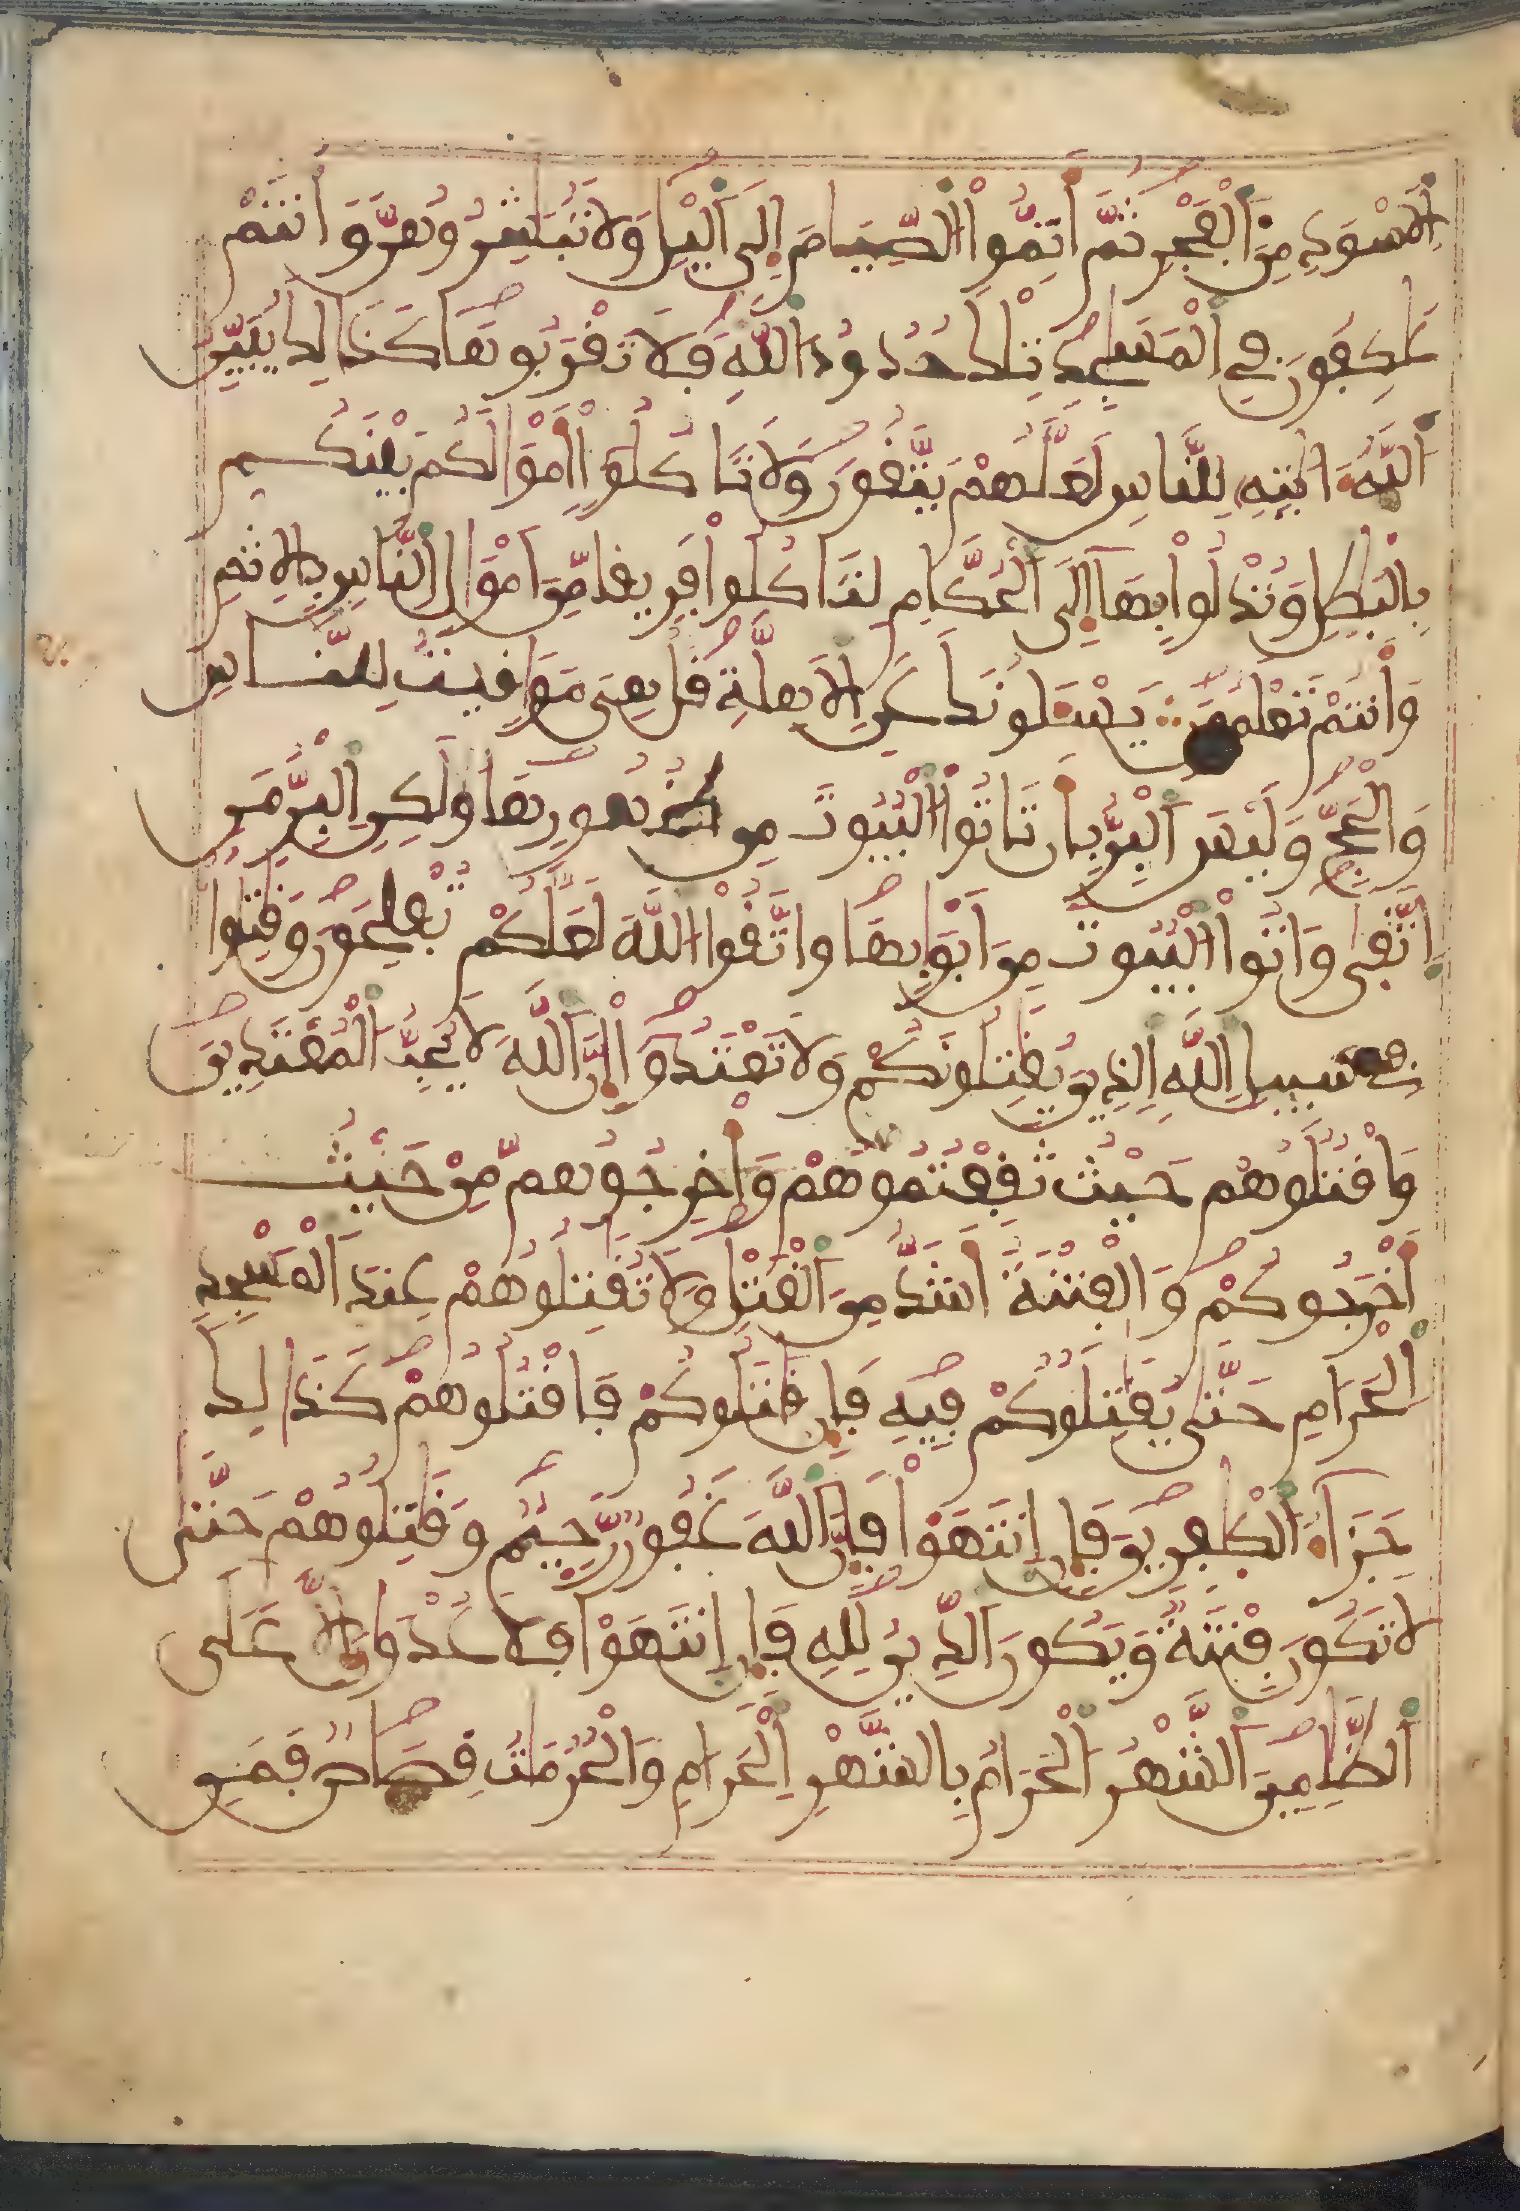 اَلَاسْوَدِ مِنَ اَلْفَجْرِ ثُمَّ أَتِمُّواْ اُلصِّيَامَ إِلَى اَليْلِ وَلَا تُبَٰشِرُوهُنَّ وَأَنتُمْ
عَٰكِفُونَ فِي اِلْمَسَٰجِدِ تِلْكَ حُدُودُ اُللَّهِ فَلَا تَقْرَبُوهَا كَذَٰلِكَ يُبَيِّنُ
اُللَّهُ ءَايَٰتِهِ لِلنَّاسِ لَعَلَّهُمْ يَتَّقُونَ وَلَا تَاكُلُوٓاْ أَمْوَٰلَكُم بَيْنَكُم
بِالْبَٰطِلِ وَتُدْلُواْ بِهَآ إِلَى اَلْحُكَّامِ لِتَاكُلُواْ فَرِيقا مِّنَ اَمْوَٰلِ اِلنَّاسِ بِالِاثْمِ
وَأَنتُمْ تَعْلَمُونَ يَسْـَٔلُونَكَ عَنِ اِلَاهِلَّةِ قُلْ هِىَ مَوَٰقِيتُ لِلنَّاسِ
وَالْحَجِّ وَلَيْسَ اَلْبِرُّ بِأَن تَاتُواْ اُلْبُيُوتَ مِن ظُهُورِهَا وَلَٰكِنِ اِلْبِرُّ مَنِ
اِتَّقَىٰ وَاتُواْ اُلْبُيُوتَ مِنَ اَبْوَٰبِهَا وَاتَّقُواْ اُللَّهَ لَعَلَّكُمْ تُفْلِحُونَ وَقَٰتِلُواْ
فِي سَبِيلِ اِللَّهِ اِلذِينَ يُقَٰتِلُونَكُمْ وَلَا تَعْتَدُوٓاْ إِنَّ اَللَّهَ لَا يُحِبُّ اُلْمُعْتَدِينَ
وَاقْتُلُوهُمْ حَيْثُ ثَقِفْتُمُوهُمْ وَأَخْرِجُوهُم مِّنْ حَيْثُ
أَخْرَجُوكُمْ وَالْفِتْنَةُ أَشَدُّ مِنَ اَلْقَتْلِ وَلَا تُقَٰتِلُوهُمْ عِندَ اَلْمَسْجِدِ
اِلْحَرَامِ حَتَّىٰ يُقَٰتِلُوكُمْ فِيهِ فَإِن قَٰتَلُوكُمْ فَاقْتُلُوهُمْ كَذَٰلِكَ
جَزَآءُ اُلْكَٰفِرِينَ فَإِنِ اِنتَهَوْاْ فَإِنَّ اَللَّهَ غَفُورٌ رَّحِيمٌ وَقَٰتِلُوهُمْ حَتَّىٰ
لَا تَكُونَ فِتْنَةٌ وَيَكُونَ اَلدِّينُ لِلهِ فَإِنِ اِنتَهَوْاْ فَلَا عُدْوَٰنَ إِلَّا عَلَى
اَلظَّٰلِمِينَ اَلشَّهْرُ اُلْحَرَامُ بِالشَّهْرِ اِلْحَرَامِ وَالْحُرُمَٰتُ قِصَاصٌ فَمَنِ